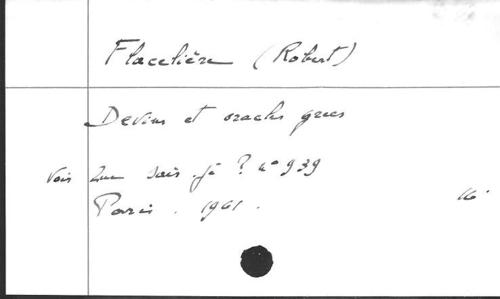 Flacelière (Robert)
Devins et oracles grecs
Vois Que sais-je ? n° 939
Paris. 1961.
16°